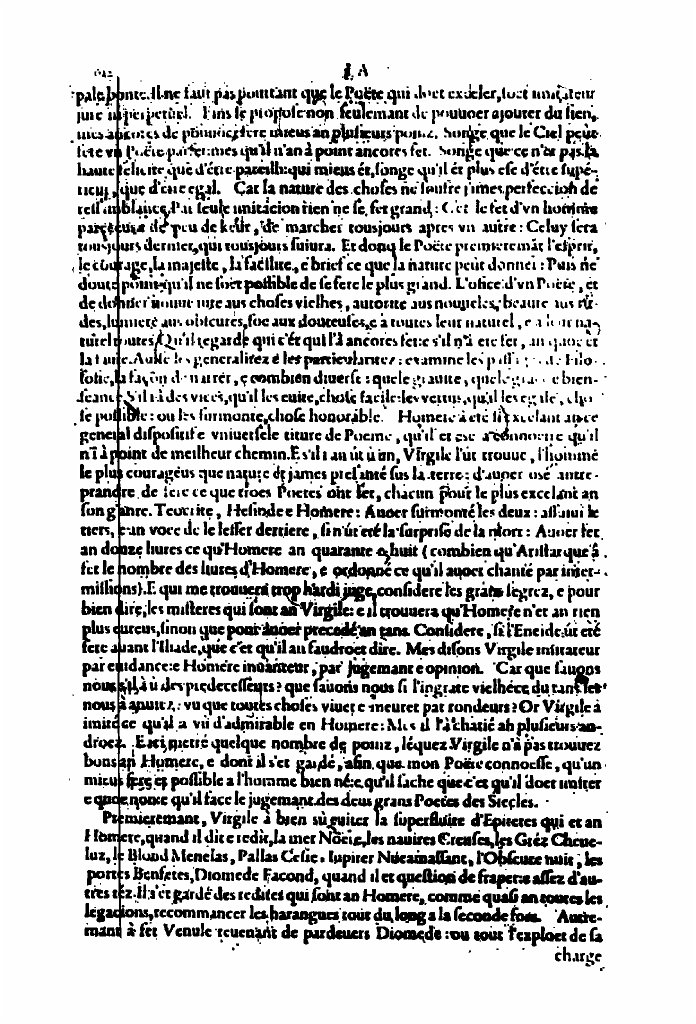 LA
pale honte. Il ne faut pas pourtant que le Poëte qui doet exceler, soet imitateur
juré ni perpetuel. Eins se propose non seulemant de pouuoer ajouter du sien,
mes ancores de pouuoer fere mieus an plusieurs poinz. Songe que le Ciel peùt
fere vn Poëte parfet: mes qu'il n'an à point ancores fet. Songe que ce n'et pas la
haute felicite que d'étre pareilh: qui mieus ét, songe qu'il ét plus ese d'étre supe-
rieur, que d'étre egal. Car la nature des choses ne soufre james perfeccion de
ressamblance. Par seule imitacion rien ne se fet grand: C'et le fet d'vn homme
parceus e de peu de keur, de marcher tousjours apres vn autre: Celuy sera
tousjours dernier, qui tousjours suiura. Et donq le Poëte premieremãt l'esprit,
le courage, la majeste, la facilite, e brief ce que la nature peùt donner: Puis ne
doute point qu'il ne soet possible de se fere le plus grand. L'ofice d'vn Poëte, ét
de donner nouueaute aus choses vielhes, autorite aus nouueles, beaute aus ru-
des, lumiere aus obscures, foe aux douteuses, e à toutes leur naturel, e a leur na-
turel toutes. Qu'il regarde qui c'ét qui l'à ancores fet: e s'il n'à ete fet, an quoe et
la faute. Auise les generalitez e les particularitez: examine les de Filo-
sofie, la façon de narrer, e combien diuerse: quele grauite, quele grace e bien-
seance. S'il i à des vices, qu'il les euite, chose facile: les vertus, qu'il les egale, cho-
se possible: ou les surmonte, chose honorable. Homere à été si excelant auec
general disposition vniuersele titure de Poeme, qu'il et ese a connoetre qu'il
n'i à point de meilheur chemin. E s'il i an út ù un, Virgile l'út trouue, l'homme
le plus courageus que nature et james presanté sus la terre: d'auoer osé antre-
prandre de fere ce que troes Poetes ont fet, chacun pour le plus excelant an
son g'anre. Teocrite, Hesiode e Homere: Auoer surmonté les deux: assailli le
tiers, e an voee de le lesser derriere, si n'út été la surprise de la mort: Auoer fet
an douze liures ce qu'Homere an quarante e huit (combien qu'Aristarque à
fet le nombre des liures d'Homere, e ordonné ce qu'il auoet chanté par inter-
missions). E qui me trouuera trop hardi juge, considere les grãs segrez, e pour
bien dire, les misteres qui sont an Virgile: e il trouuera qu'Homere n'et an rien
plus eureus, sinon que pour auoer precedé an tans. Considere, si l'Eneide út été
fete auant l'Iliade, que c'et qu'il an faudroet dire. Mes disons Virgile imitateur
par euidance: e Homere inuanteur, par jugemant e opinion. Car que sauons
nous s'il à ù des predecesseurs? que sauons nous si l'ingrate vielhéce du tans les
nous à anuiez: vu que toutes choses viuet e meuret par rondeurs? Or Virgile à
imité ce qu'il a vù d'admirable en Homere: Mes il l'à chatié an plusieurs an-
droez. E ici metré quelque nombre de poinz, léquez Virgile n'à pas trouuez
bons an Homere, e dont il s'et gardé, afin que mon Poëte connoesse, qu'un
mieus fere et possible a l'homme bien né: e qu'il sache que c'et qu'il doet imiter
e quoe non: e qu'il face le jugemant des deus grans Poetes des Siecles.
Premieremant, Virgile à bien sù euiter la superfluite d'Epitetes qui et an
Homere, quand il dit e redit, la mer Noere, les nauires Creuses, les Gréz Cheue-
luz, le Blond Menelas, Pallas Cesie, Iupiter Nueamassant, l'Obscure nuit, les
portes Bienfetes, Diomede Facond, quand il et question de fraper: e assez d'au-
tres téz. Il s'et gardé des redites qui sont an Homere, comme quasi an toutes les
legacions, recommancer les harangues tout du long a la seconde foes. Autre-
mant à fet Venule reuenant de pardeuers Diomede: ou tout l'exploet de sa
charge